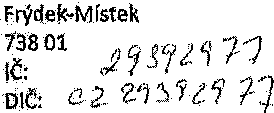 Frýdek-Místek
738 01
IČ: 29392977
DIČ: CZ 29392977